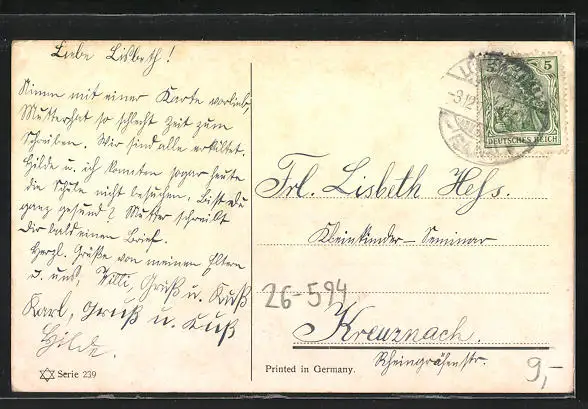 Liebe Lisbeth!
Nimm mit einer Karte vorlieb,
Mutter hat so schlecht Zeit zum
Schreiben. Wir sind alle erkältet.
Hilde u. ich konnten sogar heute
die Schule nicht besuchen. Bist Du
ganz gesund? Mutter schreibt
Dir bald einen Brief.
Herzl. Grüße von meinen Eltern
u. uns, Willi, Gruß u. Kuß
Karl, Gruß u. Kuß
Hilde.
Serie 239
5
DEUTSCHES REICH
Frl. Lisbeth Hess.
Kleinkinder-Seminar
26-594
Kreuznach.
Rheingrafenstr.
Printed in Germany.
9,-